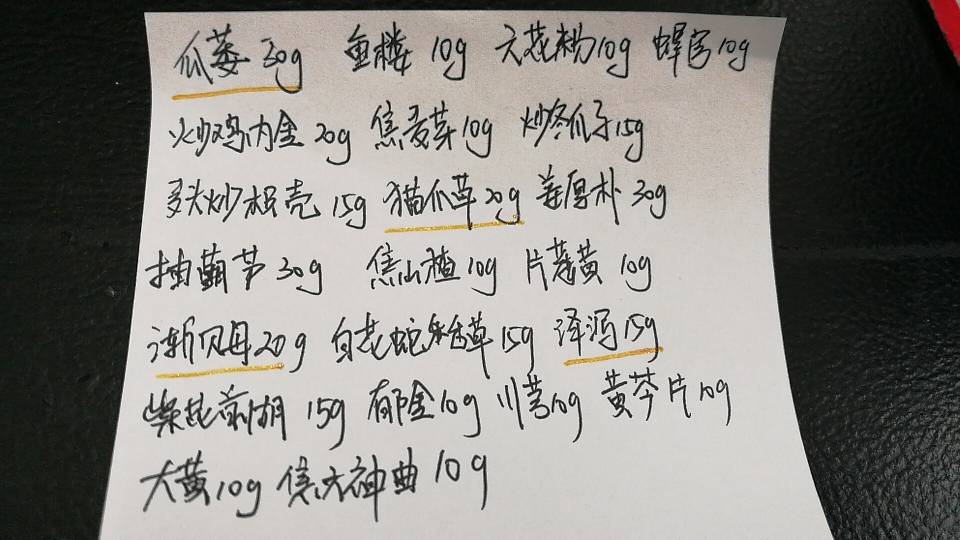 瓜蒌30g 鱼楼10g 天花粉10g 蝉宫10g
火炒鸡内金20g 焦麦芽10g 炒冬瓜子15g
炒枳壳15g 猫爪草20g 姜厚朴30g
葫芦30g 焦山楂10g 片姜黄10g
浙贝母20g 白花蛇舌草15g 泽泻15g
紫花前胡15g 郁金10g 川芎10g 黄芩片10g
大黄10g 焦六神曲10g